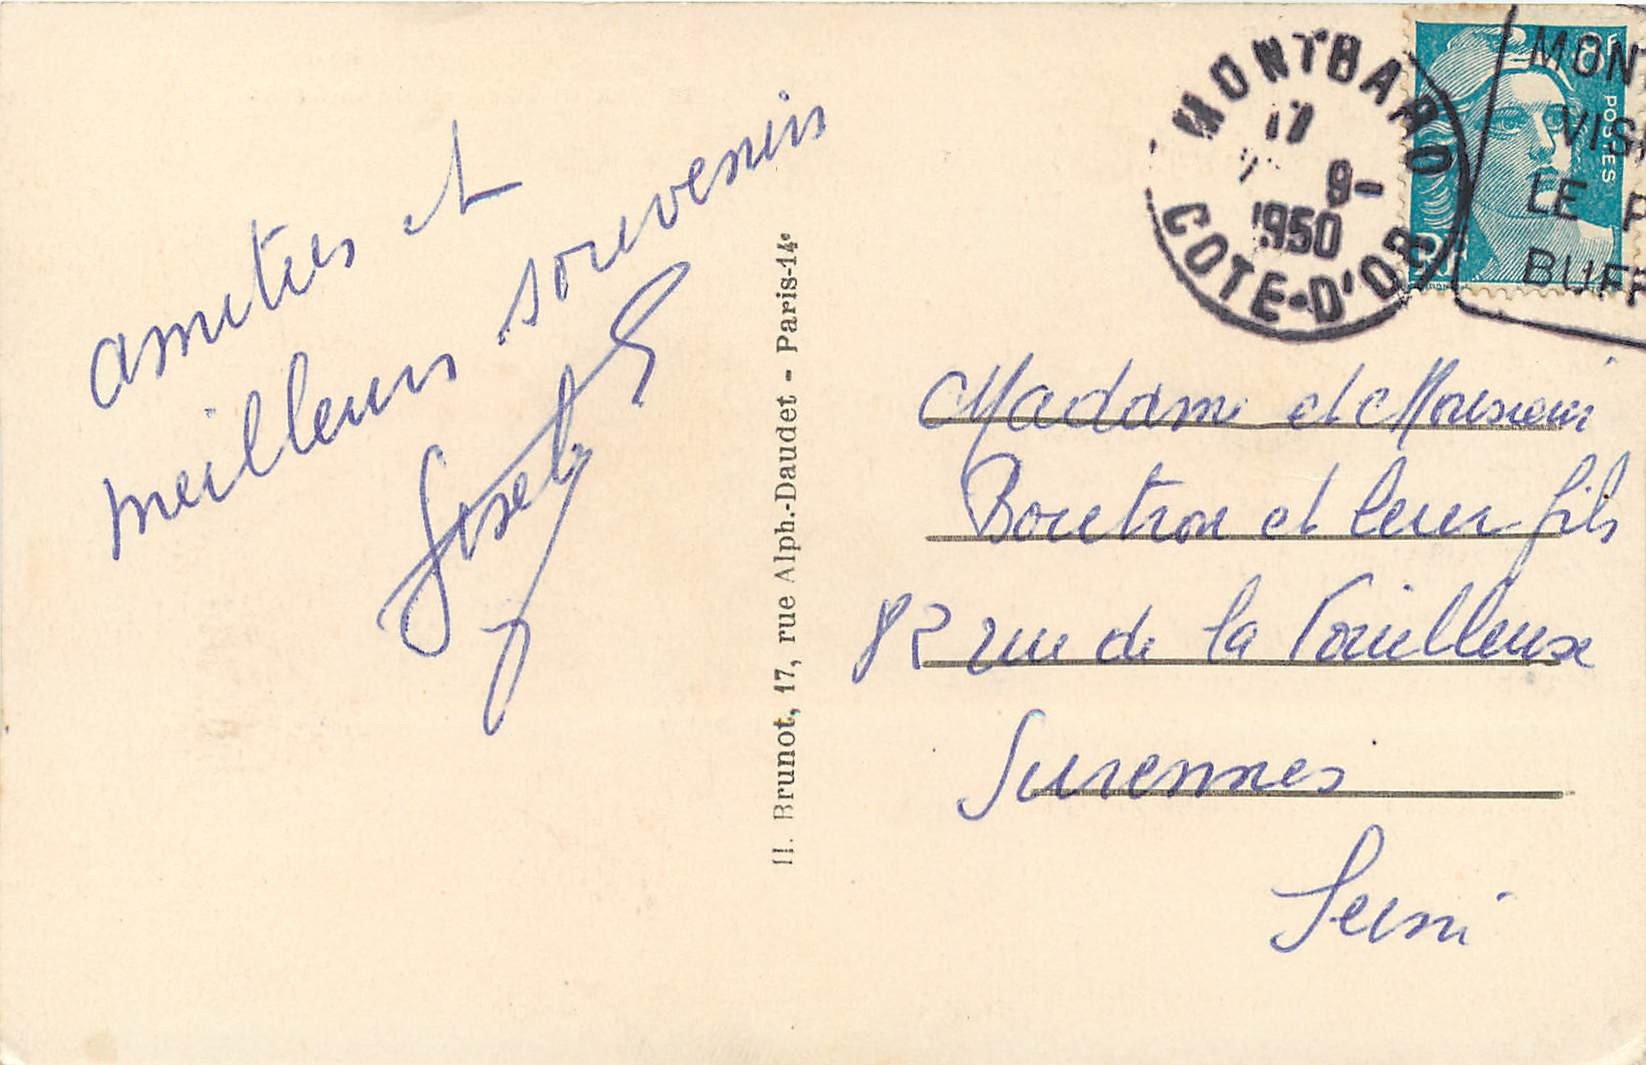 amities et
meilleurs souvenirs
H. Brunot, 17, rue Alph.-Daudet - Paris-14e
MONTBARD
17
9-
1950
COTE-D'OR
POSTES
MONT
VISI
LE P
BUFF
Madame et Monsieur
Boutron et leur fils
82 rue de la Touilleuse
Suresnes
Seine